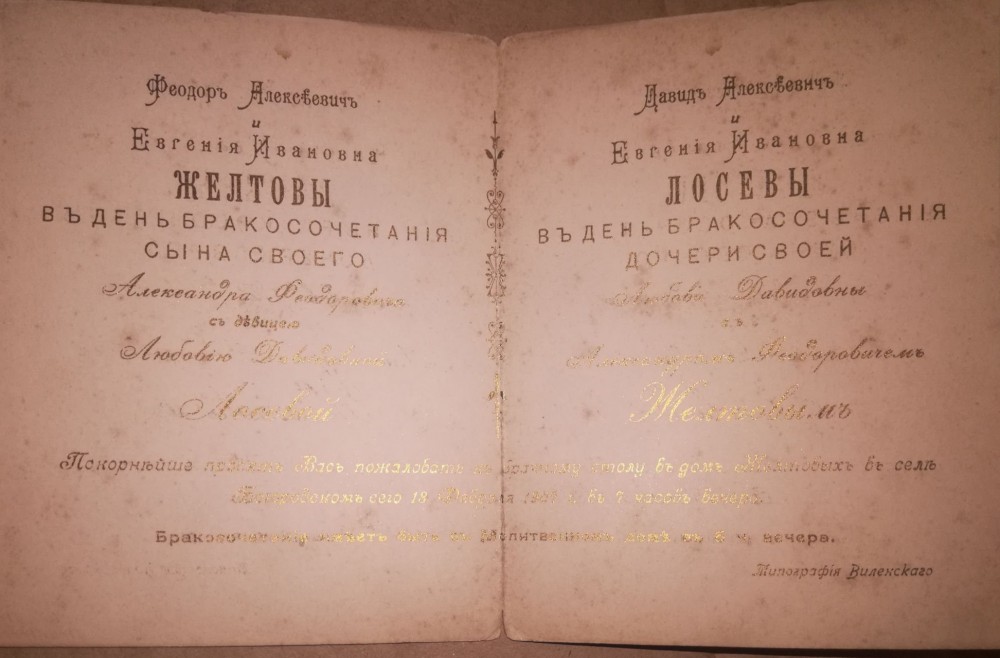 Ѳеодоръ Алексѣевичъ
и
Евгенія Ивановна
ЖЕЛТОВЫ
ВЪ ДЕНЬ БРАКОСОЧЕТАНІЯ
СЫНА СВОЕГО
Александра Ѳеодоровича
съ дѣвицею
Любовію Давидовной
Лосевой
Давидъ Алексѣевичъ
и
Евгенія Ивановна
ЛОСЕВЫ
ВЪ ДЕНЬ БРАКОСОЧЕТАНІЯ
ДОЧЕРИ СВОЕЙ
Любови Давидовны
съ
Александромъ Ѳеодоровичемъ
Желтовымъ
Покорнѣйше просятъ Васъ пожаловать къ брачному столу въ домъ въ селѣ
сего 18 Февраля г. въ 7 часовъ вечера.
Бракосочетаніе имѣетъ быть въ Молитвенномъ домѣ въ ч. вечера.
Типографія Виленскаго